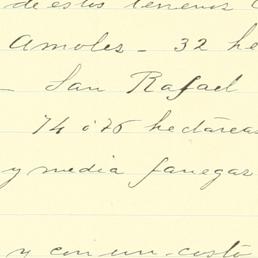 de estos terrenos
Amoles - 32 he
- San Rafael
74 ó 76 hectáreas
y media fanegas
y con un costo